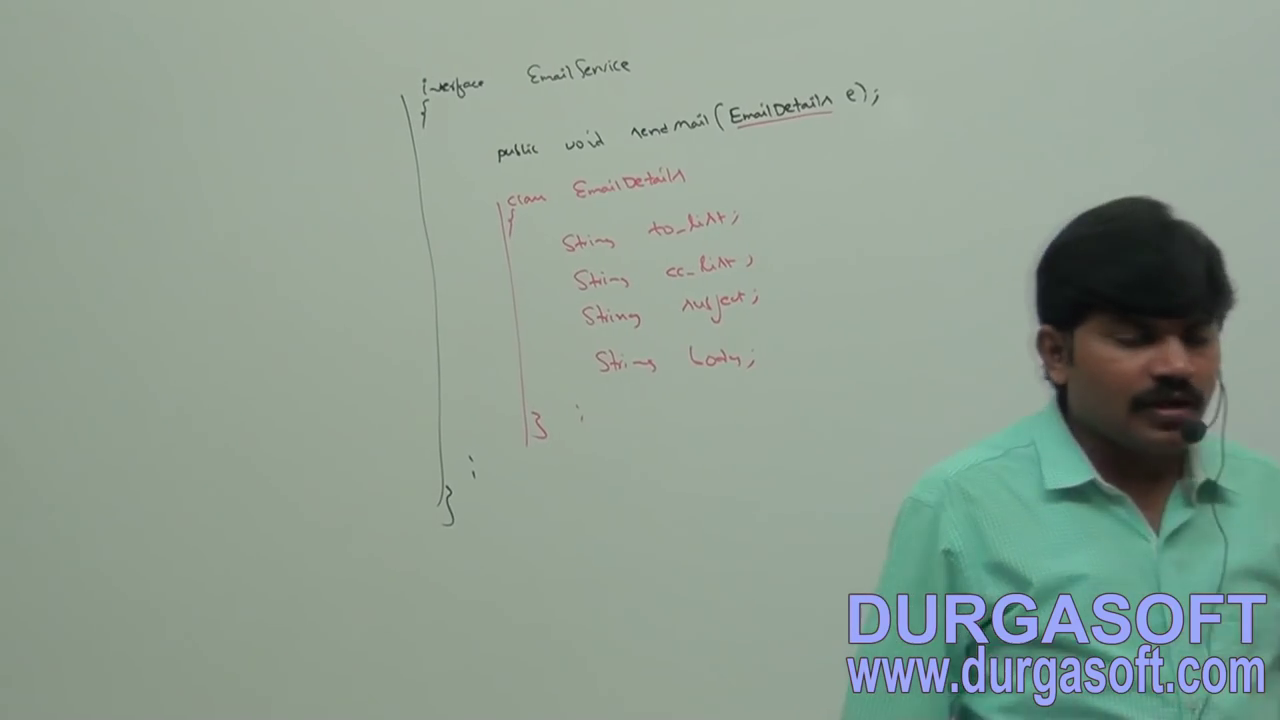 interface EmailService
{
public void sendMail(EmailDetails e);
class EmailDetails
{
String to_list;
String cc_list;
String subject;
String body;
} ;
;
}
DURGASOFT
www.durgasoft.com